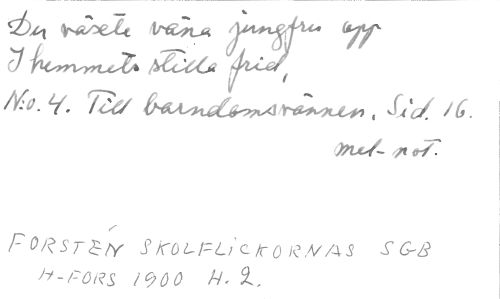 Du växte väna jungfru opp
I hemmets stilla frid,
N:o. 4. Till barndomsvännen. Sid. 16.
mel-not.
FORSTÉN SKOLFLICKORNAS SGB
H-FORS 1900 H. 2.